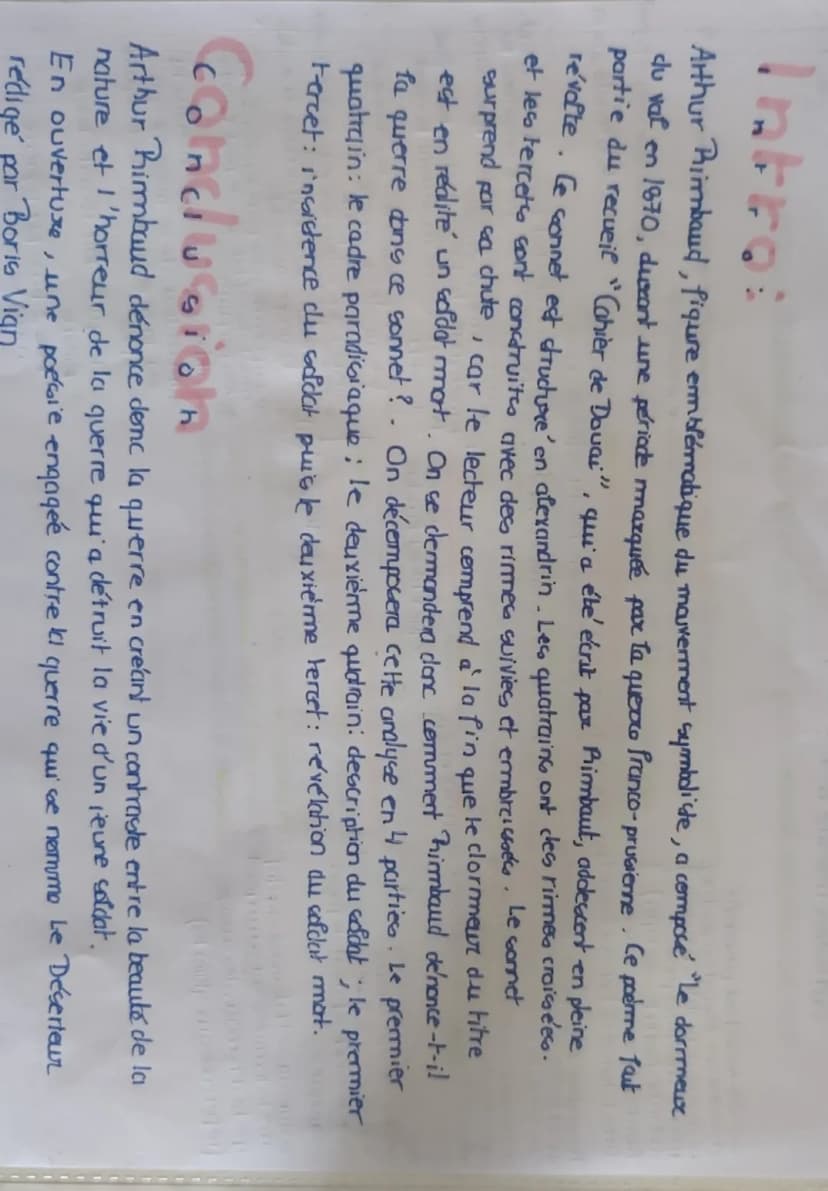 Intro:
Arthur Rimbaud, figure emblématique du mouvement symboliste, a composé "Le dormeur
du val en 1870, durant une période marquée par la guerre franco-prussienne. Ce poème fait
partie du recueil "Cahier de Douai", qui a été écrit par Rimbaut, adolescent en pleine
révolte. Ce sonnet est structuré en alexandrin. Les quatrains ont des rimes croisées.
et les tercets sont construits avec des rimes suivies et embrassées. Le sonnet
surprend par sa chute, car le lecteur comprend à la fin que le dormeur du titre
est en réalité un soldat mort. On se demandera donc comment Rimbaud dénonce-t-il
la guerre dans ce sonnet?. On décomposera cette analyse en 4 parties. Le premier
quatrain: le cadre paradisiaque; le deuxième quatrain: description du soldat; le premier
tercet: insistence du soldat puis le deuxième tercet: révélation du soldat mort.
Conclusion
Arthur Rimbaud dénonce donc la guerre en créant un contraste entre la beauté de la
nature et l'horreur de la guerre qui a détruit la vie d'un jeune soldat.
En ouverture, une poésie engagée contre la guerre qui se nomme Le Déserteur
rédigé par Boris Vian